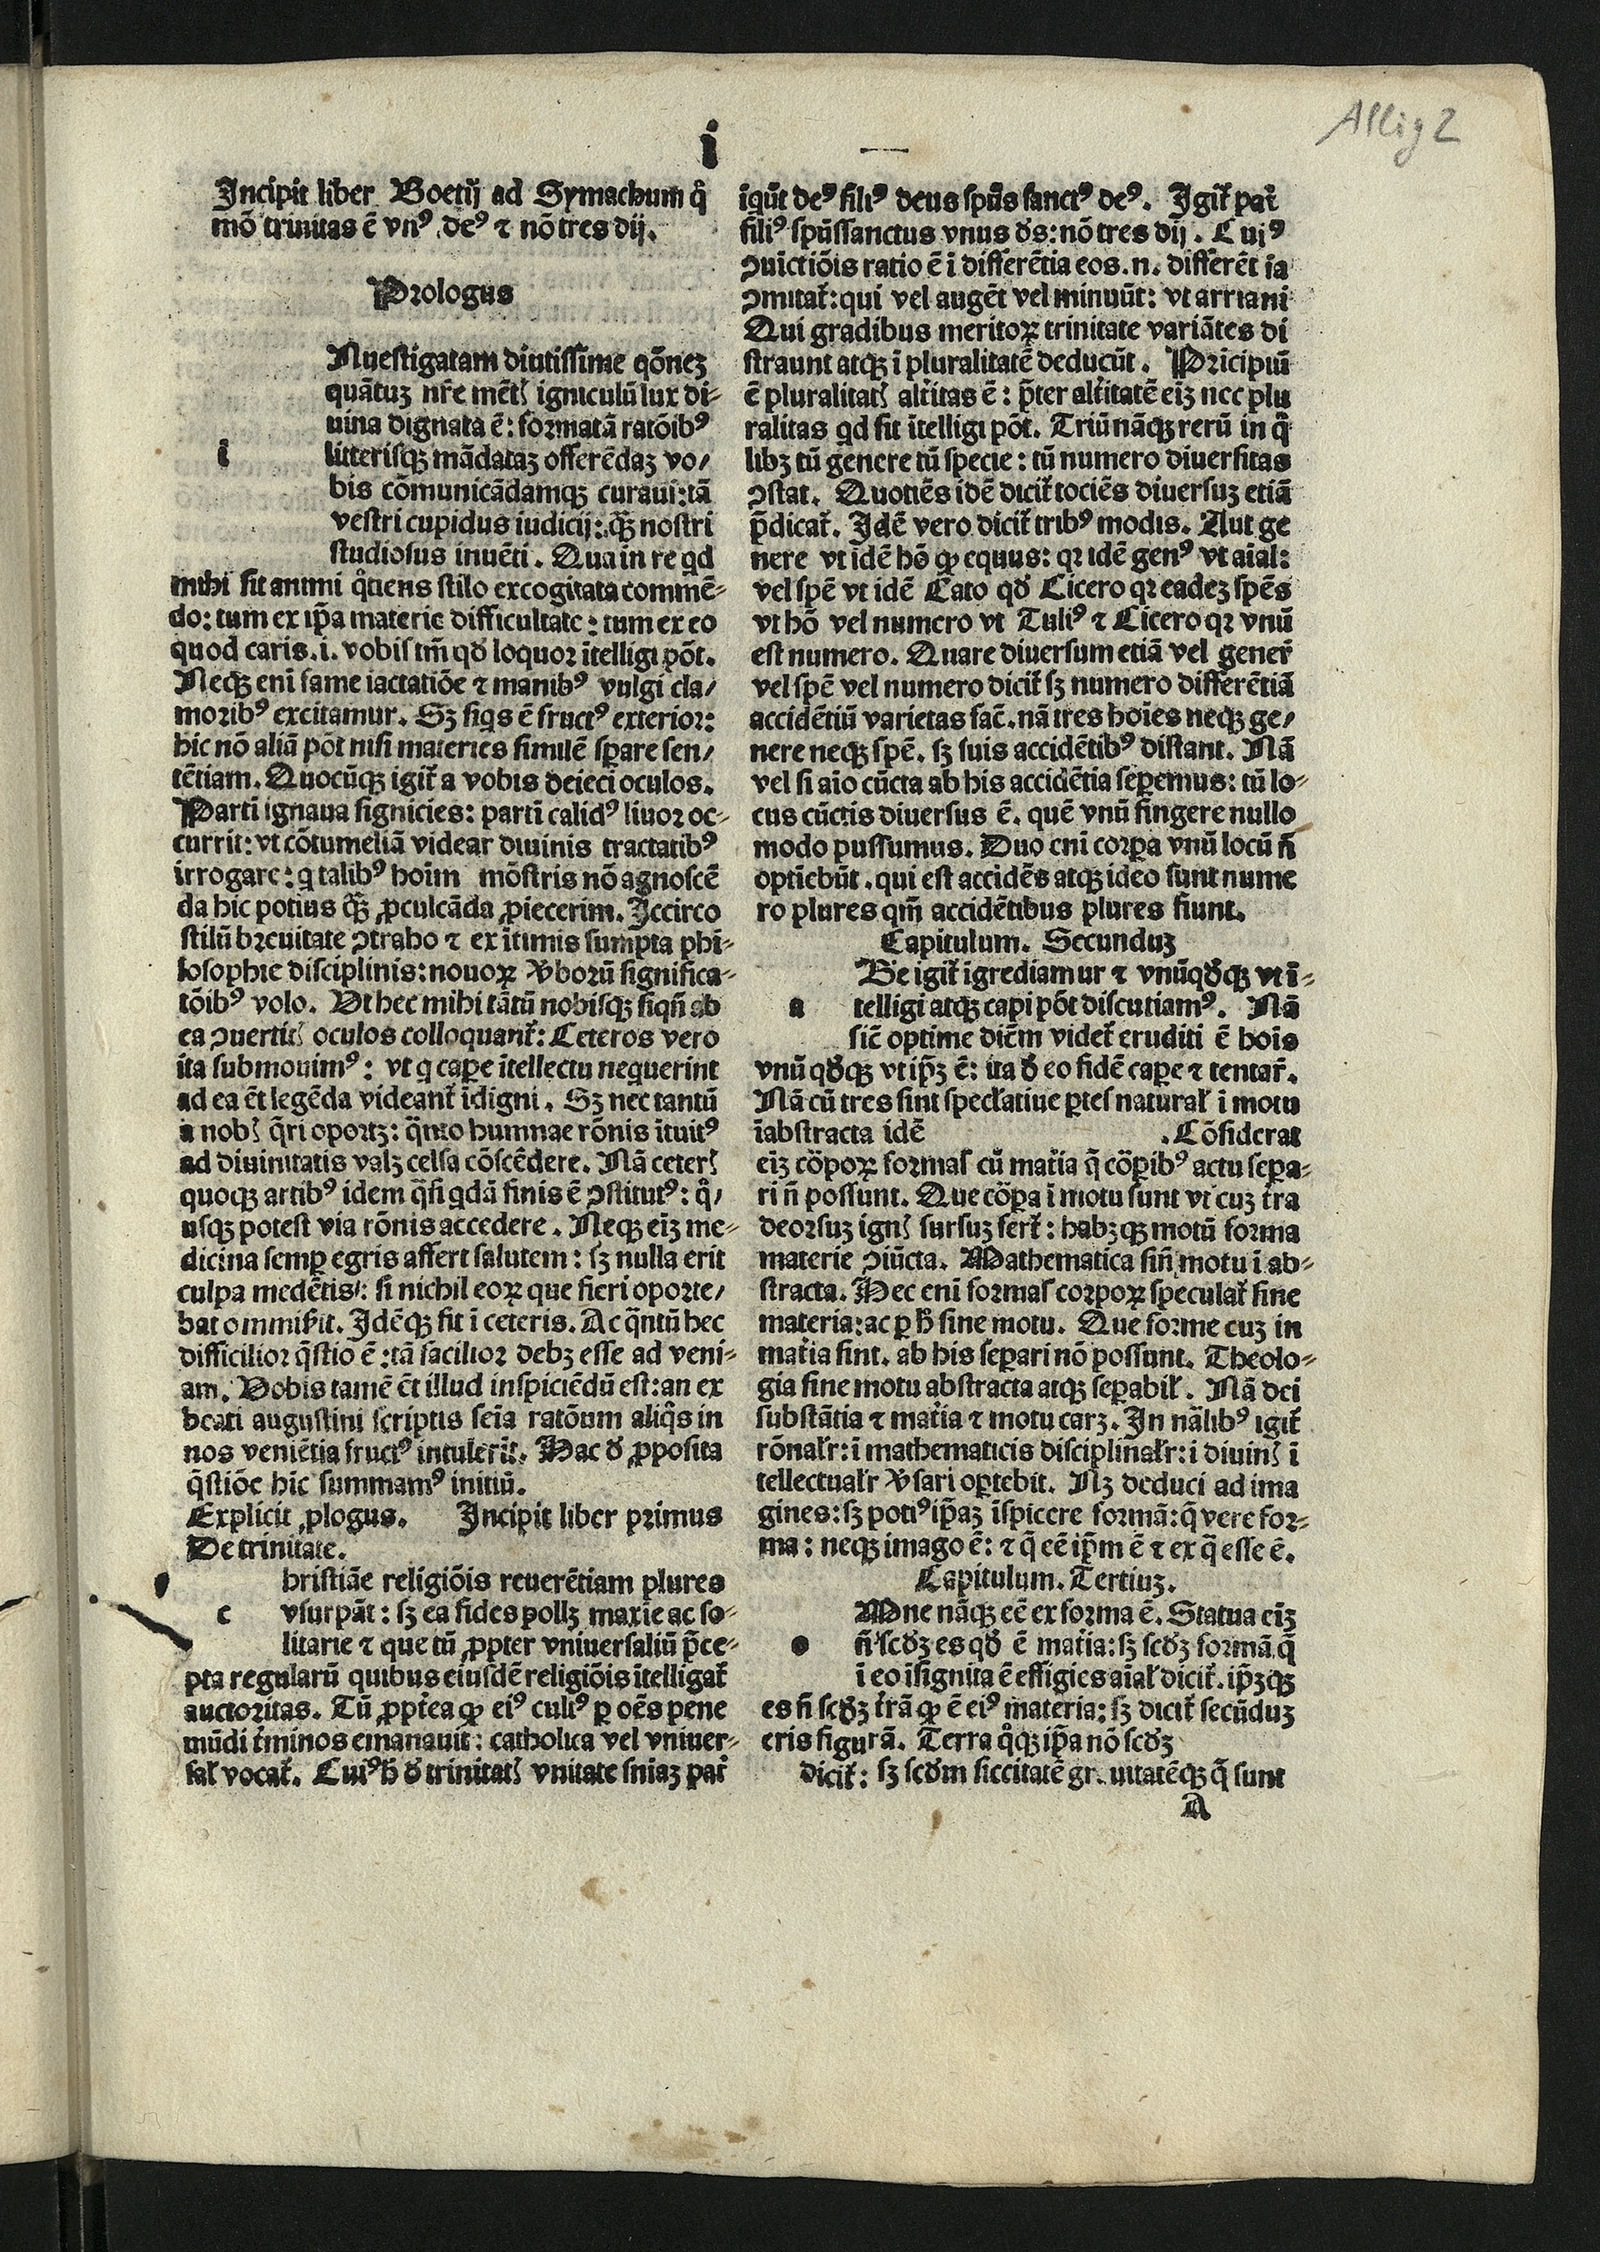 i
Allig 2
Incipit liber Boetij ad Symachum q̊
mō trinitas ē vnꝰ deꝰ ⁊ nō tres dij.
Prologus
i
Nuestigatam diutissime qōneꝫ
quātuꝫ nr̄e mētꝭ igniculū lux di-
uina dignata ē: formatā ratōibꝰ
litterisqꝫ mādataꝫ offerēdaꝫ vo/
bis cōmunicādamqꝫ curaui: tā
vestri cupidus iudicij: qꝫ̄ nostri
studiosus inuēti. Qua in re qd
mihi sit animi q̊tiens stilo excogitata commē-
do: tum ex ip̄a materie difficultate: tum ex eo
quod caris .i. vobis tm̄ qđ loquor ītelligi pōt.
Neqꝫ eni fame iactatiōe ⁊ manibꝰ vulgi cla/
moribꝰ excitamur. Sꝫ siqs ē fructꝰ exterior:
hic nō aliā pōt nisi materies similē sꝑare sen/
tētiam. Quocūqꝫ igit̄ a vobis deieci oculos.
Parti ignaua signicies: parti calidꝰ liuor oc-
currit: vt cōtumeliā videar diuinis tractatibꝰ
irrogare: q talibꝰ hoim mōstris nō agnoscē
da hic potius qꝫ̄ ꝓculcāda ꝓiecerim. Iccirco
stilū breuitate ꝯtraho ⁊ ex ītimis sumpta phi-
losophie disciplinis: nouoꝝ v̄borū significa-
tōibꝰ volo. Vt hec mihi tātū nobisqꝫ siqn̄ ab
ea ꝯuertitꝭ oculos colloquant̄: Ceteros vero
ita submouimꝰ: vt q caꝑe ītellectu nequerint
ad ea ēt legēda videant̄ īdigni. Sꝫ nec tantū
a nobꝭ q̄ri oportꝫ: q̄nto humnae rōnis ītuitꝰ
ad diuinitatis valꝫ celsa cōscēdere. Nā ceterꝭ
quoqꝫ artibꝰ idem q̄si qdā finis ē ꝯstitutꝰ: q̊/
usqꝫ potest via rōnis accedere. Neqꝫ eiꝫ me-
dicina semꝑ egris affert salutem: sꝫ nulla erit
culpa medētis: si nichil eoꝝ que fieri oporte/
bat ommisit. Idēqꝫ fit ī ceteris. Ac q̄ntū hec
difficilior q̄stio ē: tā facilior debꝫ esse ad veni-
am. Vobis tamē ēt illud inspiciēdū est: an ex
beati augustini scriptis seīa ratōum aliq̊s in
nos veniētia fructꝰ intulerīt. Hac đ ꝓposita
q̄stiōe hic summamꝰ initiū.
Explicit ꝓlogus. Incipit liber primus
De trinitate.
c
hristiāe religiōis reuerētiam plures
vsurpāt: sꝫ ea fides pollꝫ maxie ac so-
litarie ⁊ que tū ꝓpter vniuersaliū p̄ce-
pta regularū quibus eiusdē religiōis ītelligat̄
auctoritas. Tū ꝓpt̄ea ꝙ eiꝰ cultꝰ ꝑ oēs pene
mūdi t̄minos emanauit: catholica vel vniuer-
sal̄ vocat̄. Cuiꝰ h̄ đ trinitatꝭ vnitate sniaꝫ pat̄
īqūt deꝰ filiꝰ deus spūs sanctꝰ deꝰ. Igit̄ pat̄
filiꝰ spūssanctus vnus đs: nō tres dij. Cuiꝰ
ꝯuictiōis ratio ē ī differētia eos .n. differēt ia
ꝯmitat̄: qui vel augēt vel minuūt: vt arriani
Qui gradibus meritoꝝ trinitate variātes di
straunt atqꝫ ī pluralitatē deducūt. Prīcipiū
ē pluralitatꝭ alt̄itas ē: p̄ter alt̄itatē eiꝫ nec plu
ralitas qd sit ītelligi pōt. Triū nāqꝫ rerū in q̄
libꝫ tū genere tū specie: tū numero diuersitas
ꝯstat. Quotiēs idē dicit̄ tociēs diuersuꝫ etiā
p̄dicat̄. Idē vero dicit̄ tribꝰ modis. Aut ge
nere vt idē hō ꝙ equus: qꝛ idē genꝰ vt aīal:
vel spē vt idē Cato qđ Cicero qꝛ eadeꝫ spēs
vt hō vel numero vt Tuliꝰ ⁊ Cicero qꝛ vnū
est numero. Quare diuersum etiā vel gener̄
vel spē vel numero dicit̄ sꝫ numero differētiā
accidētiū varietas fac̄. nā tres hoīes neqꝫ ge/
nere neqꝫ spē. sꝫ suis accidētibꝰ distant. Nā
vel si aīo cūcta ab his accidētia seꝑemus: tū lo-
cus cūctis diuersus ē. quē vnū fingere nullo
modo pussumus. Duo eni corꝑa vnū locū n̄
optīebūt. qui est accidēs atqꝫ ideo sunt nume
ro plures qm̄ accidētibus plures fiunt.
Capitulum. Secunduꝫ
a
Ge igit̄ īgrediamur ⁊ vnūqđqꝫ vt ī-
telligi atqꝫ capi pōt discutiamꝰ. Nā
sic̄ optime dic̄m videt̄ eruditi ē hoīs
vnūqđqꝫ vt ip̄ꝫ ē: ita đ eo fidē caꝑe ⁊ tentar̄.
Nā cū tres sint specl̄atiue ꝑtes natural̄ ī motu
īabstracta idē .Cōsiderat
eiꝫ cöꝑoꝝ formas cū mat̄ia q̄ cöꝑibꝰ actu seꝑa-
ri n̄ possunt. Que cöꝑa ī motu sunt vt cuꝫ t̄ra
deorsuꝫ ignꝭ sursuꝫ fert̄: habꝫqꝫ motū forma
materie ꝯiūcta. Mathematica sin̄ motu ī ab-
stracta. Hec eni formas corpoꝝ speculat̄ sine
materia: ac ꝑ h̄ sine motu. Que forme cuꝫ in
mat̄ia sint. ab his seꝑari nō possunt. Theolo-
gia sine motu abstracta atqꝫ seꝑabil̄. Nā dei
substātia ⁊ mat̄ia ⁊ motu carꝫ. In nālibꝰ igit̄
rōnal̄r: ī mathematicis disciplinal̄r: ī diuinꝭ ī
tellectual̄r v̄sari oꝑtebit. Nꝫ deduci ad ima
gines: sꝫ potiꝰ ip̄aꝫ īspicere formā: q̄ vere for-
ma: neqꝫ imago ē: ⁊ q̄ eē ip̄m ē ⁊ ex q̄ esse ē.
Capitulum. Tertiuꝫ.
o
Mne nāqꝫ eē ex forma ē. Statua eiꝫ
n̄ scđꝫ es qđ ē mat̄ia: sꝫ scđꝫ formā q̄
ī eo īsignita ē effigies aīal̄ dicit̄. ip̄ꝫqꝫ
es n̄ scđꝫ t̄rā ꝙ ē eiꝰ materia: sꝫ dicit̄ secūduꝫ
eris figurā. Terra q̊qꝫ ip̄a nō scđꝫ
dicit̄: sꝫ scđm siccitatē gr uitatēqꝫ q̄ sunt
A